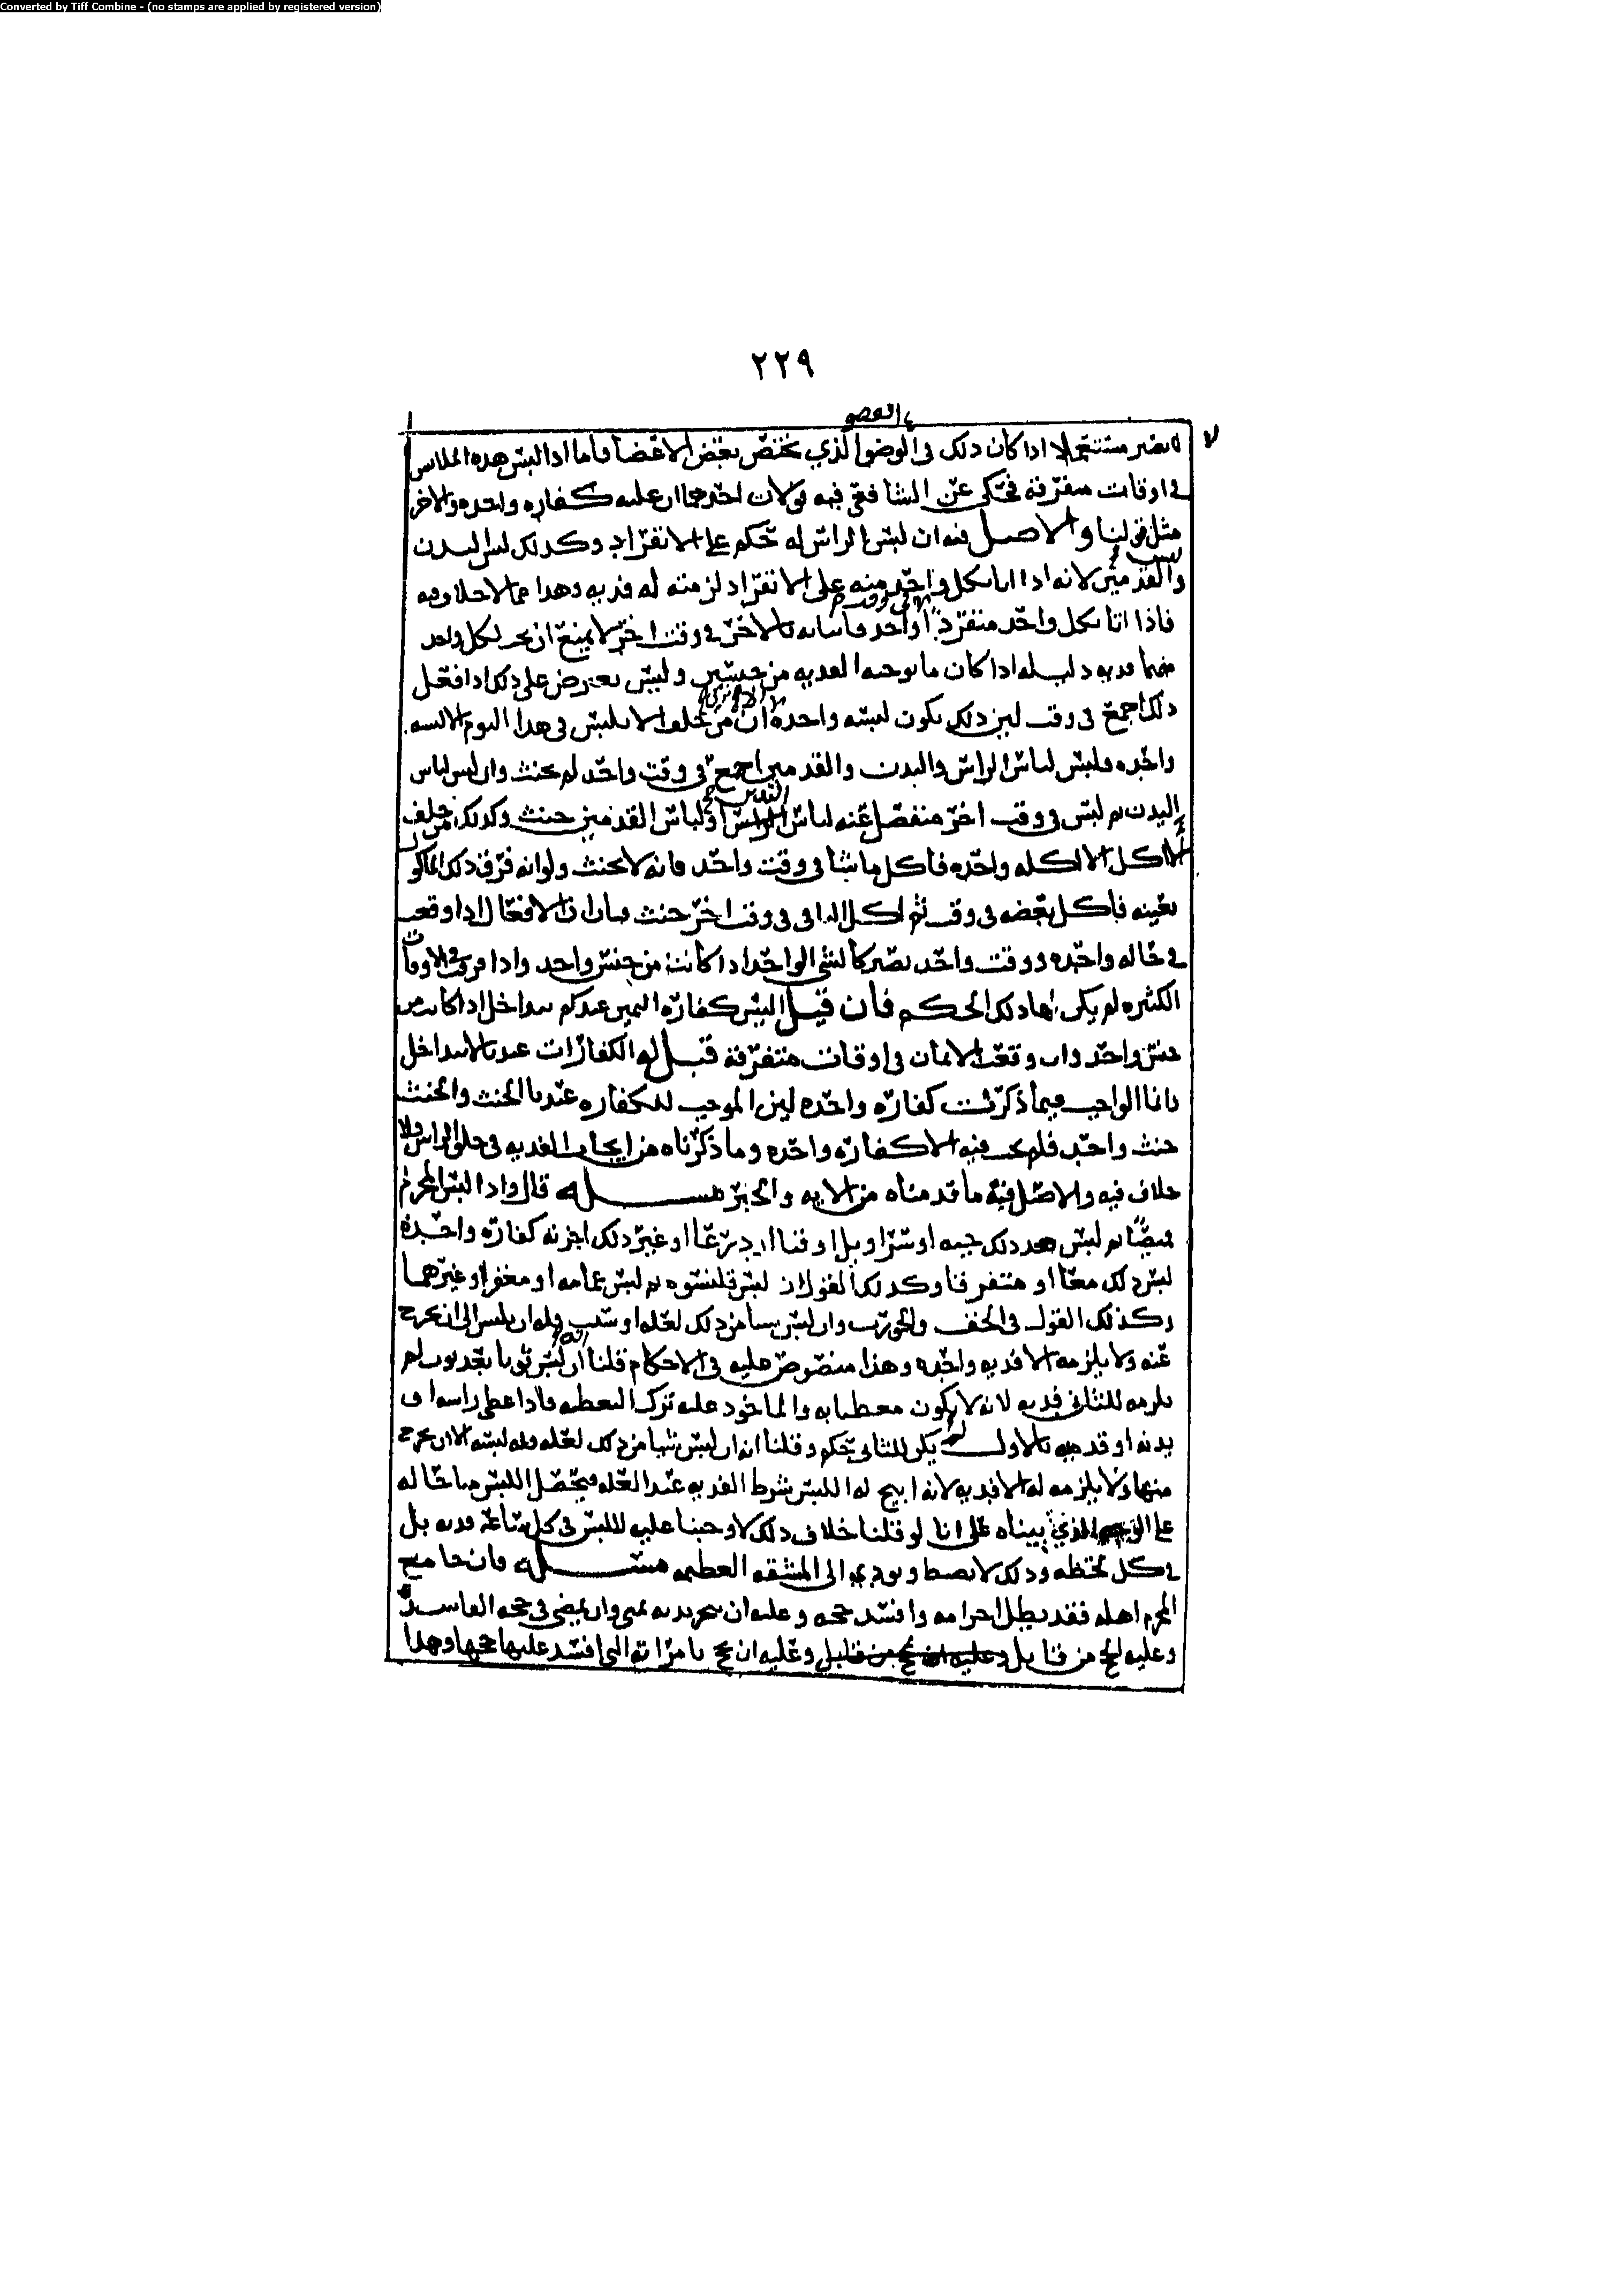 Converted by Tiff Combine - (no stamps are applied by registered version)
٢٢٩
العضو
لا يصير مستنجيا الا اذا كان ذلك في الوضو الذي يختص بعض الاعضا فاما اذا لبس هذه الملابس
في اوقات متفرقة فحكي عن الشافعي فيه قولان احدهما ان عليه كفاره واحده والاخر
مثل قولنا والاصل فيه ان لبس الراس له حكم على الانفراد وكذلك لبس البدن
والقدمين لانه اذا اتا بكل واحد منه على الانفراد لزمته له فديه وهذا مما لا خلاف فيه
فاذا اتا بكل واحد منفردا واحد فاتيانه بالاخر في وقت اخر لا يمنع ان يجب لكل واحد
منهما فديه دليله اذا كان ما يوجبه الفديه من جنسين وليس يعترض على ذلك اذا فعل
ذلك اجمع في وقت لين ذلك يكون لبسه واحده ان من حلف الا يلبس في هذا اليوم الا لبسه
واحده فلبس لباس الراس والبدن والقدمين اجمع في وقت واحد لم يحنث وان لبس لباس
البدن ثم لبس في وقت اخر منفصل عنه لباس الراس او لباس القدمين حنث وكذلك من حلف
لا اكل الا اكله واحده فاكل ما شا في وقت واحد فانه لا يحنث ولو انه فرق ذلك الماكول
بعينه فاكل بعضه في وقت ثم اكل الباقي في وقت اخر حنث فبان ان الافعال اذا وقعت
في حاله واحده ووقت واحد تصير كالشي الواحد اذا كانت من جنس واحد واذا فرقت في الاوقات
الكثيره لم يكن لها ذلك الحكم فان قيل اليس كفاره اليمين عندكم تتداخل اذا كانت من
جنس واحد وان وقعت الايمان في اوقات متفرقة قيل له الكفارات عندنا لا تتداخل
وانما الواجب فيما ذكرت كفاره واحده لين الموجب للكفاره عندنا الحنث والحنث
حنث واحد فلم يجب فيه الا كفاره واحده وما ذكرناه من ايجاب الفديه في حلق الراس فلا
خلاف فيه والاصل فيه ما قدمناه من الايه والخبر مسله قال واذا لبس المحرم
قميصا ثم لبس بعد ذلك جبه او سراويل او قبا او درعا او غير ذلك اجزته كفاره واحده
لبس ذلك معا او متفرقا وكذلك القول ان لبس قلنسوه ثم لبس عمامه او مغفرا او غيرهما
وكذلك القول في الخف والجورب وان لبس شيا من ذلك لعله او سبب فله ان يلبس الى ان يخرج
عنه ولا يلزمه الا فديه واحده وهذا منصوص عليه في الاحكام قلنا انه ان لبس ثوبا بعد ثوب لم
يلزمه للثاني فديه لانه لا يكون مغطيا به والماخوذ عليه ترك التغطيه فاذا غطى راسه او
بدنه او قدميه بالاول لم يكن للثاني حكم وقلنا انه ان لبس شيا من ذلك لعله فله لبسه الا ان يخرج
منها ولا يلزمه له الا فديه لانه ابيح له اللبس بشرط الفديه عند العله فيحصل اللبس مباحا له
على الوجه الذي بيناه على انا لو قلنا خلاف ذلك لاوجبنا عليه للبس في كل ساعه فديه بل
في كل لحظه وذلك لا ينضبط ويودي الى المشقه العظيمه مسله فان جامع
المحرم اهله فقد بطل احرامه وافسد حجه وعليه ان ينحر بدنه بمنى وان يمضي في حجه الفاسد
وعليه الحج من قابل وعليه ان يحج من قابل وعليه ان يحج بامراته التي افسد عليها حجها وهذا